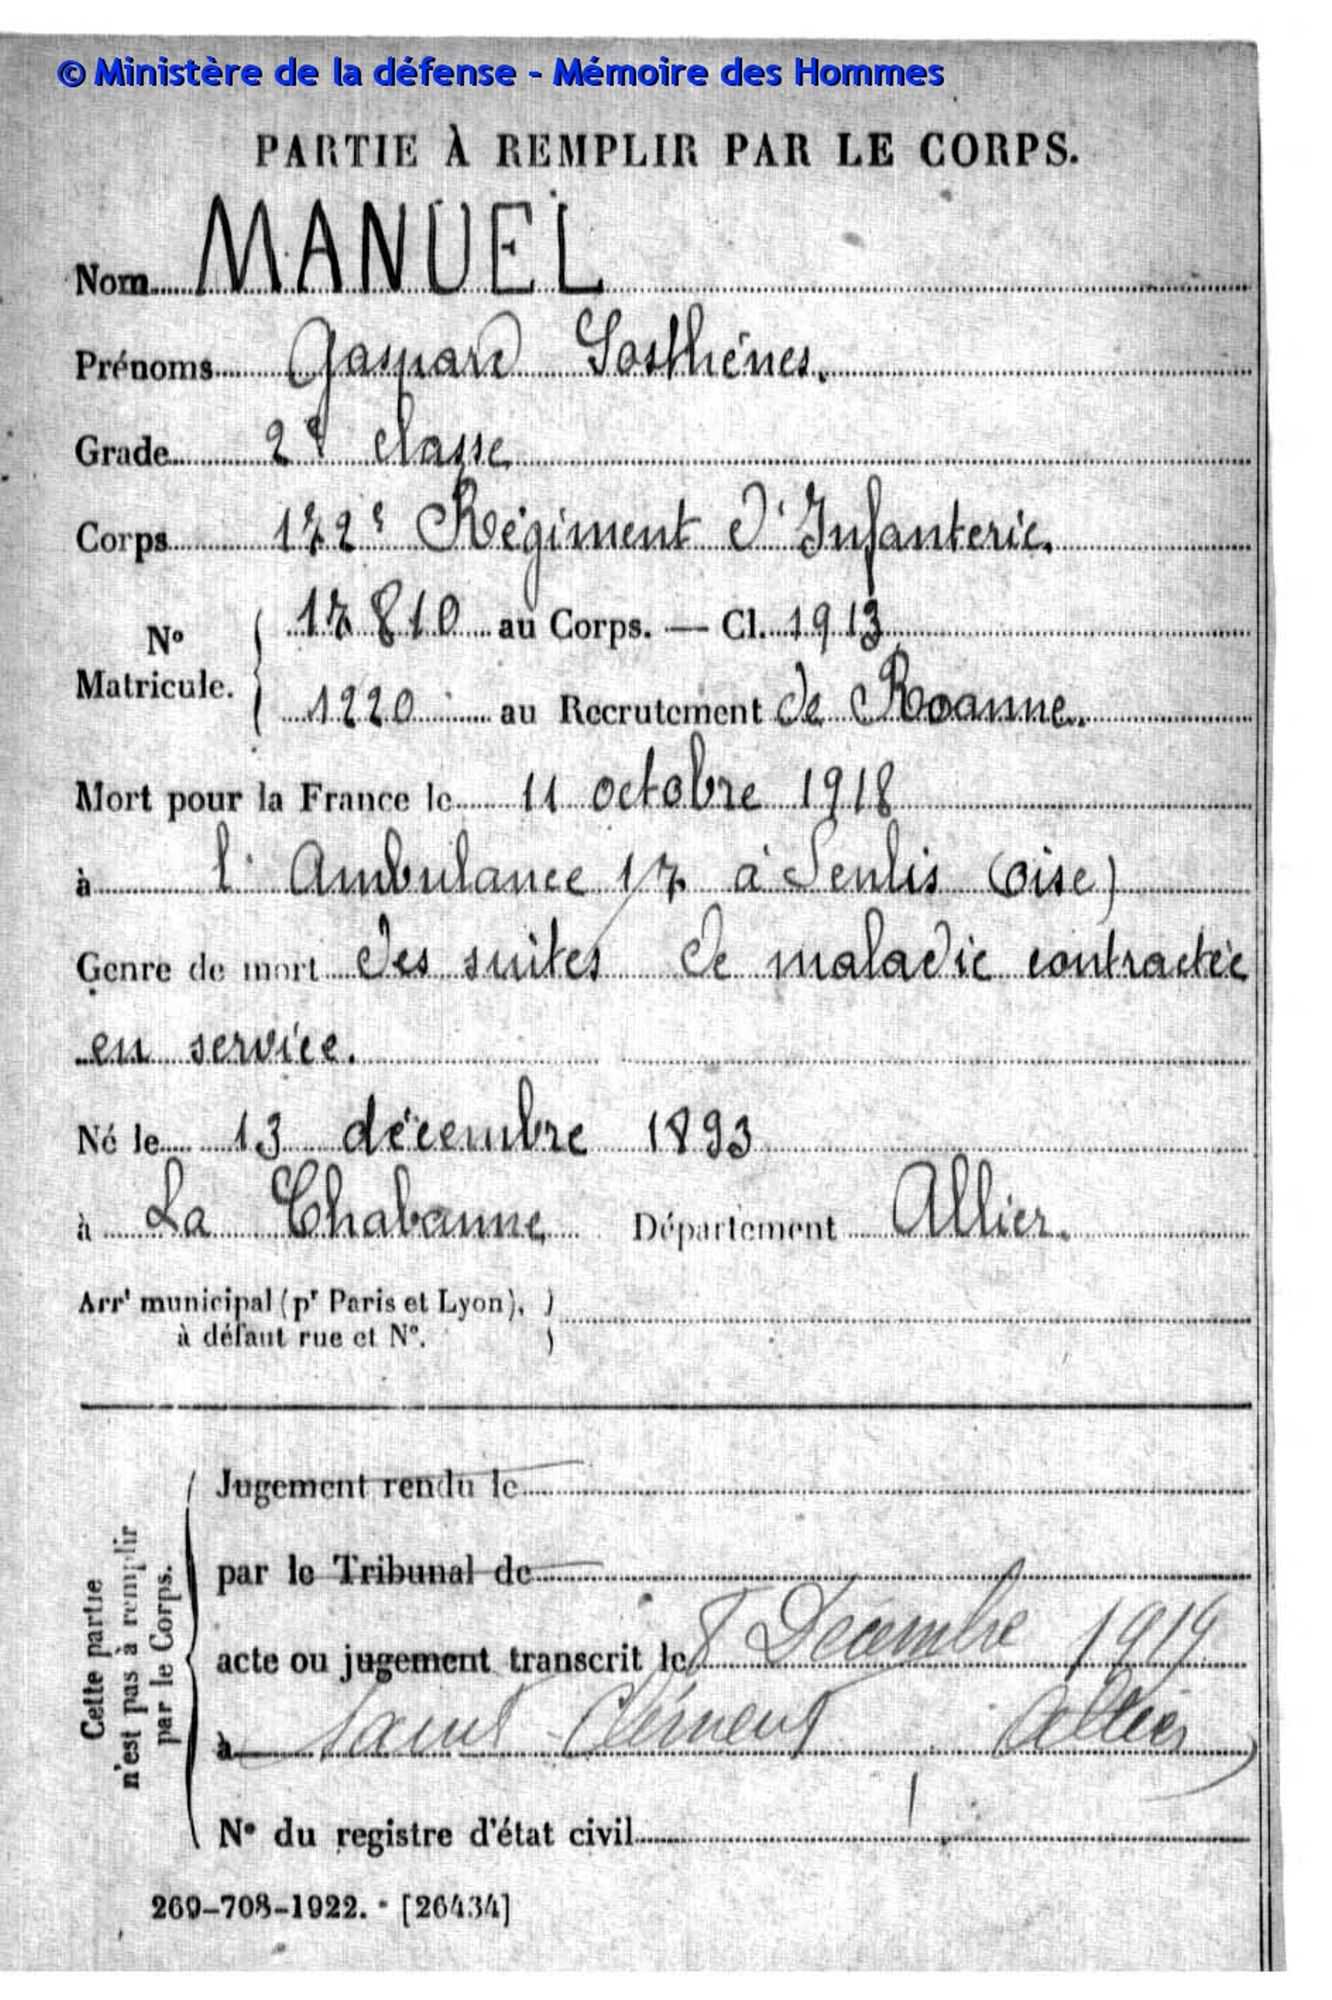 © Ministère de la défense - Mémoire des Hommes
PARTIE À REMPLIR PAR LE CORPS.
Nom MANUEL
Prénoms Gaspard Sosthènes.
Grade 2e classe
Corps 172e Régiment d'Infanterie.
N° Matricule. 17810 au Corps. — Cl. 1913
1220 au Recrutement de Roanne.
Mort pour la France le 11 octobre 1918
à l'Ambulance 17 à Senlis (Oise)
Genre de mort des suites de maladie contractée
en service.
Né le 13 décembre 1893
à La Chabanne Département Allier.
Arrt municipal (pr Paris et Lyon),
à défaut rue et N°.
Cette partie
n'est pas à remplir
par le Corps.
Jugement rendu le
par le Tribunal de
acte ou jugement transcrit le 8 Décembre 1919
à Saint Clément Allier
N° du registre d'état civil
269-708-1922. - [26434]